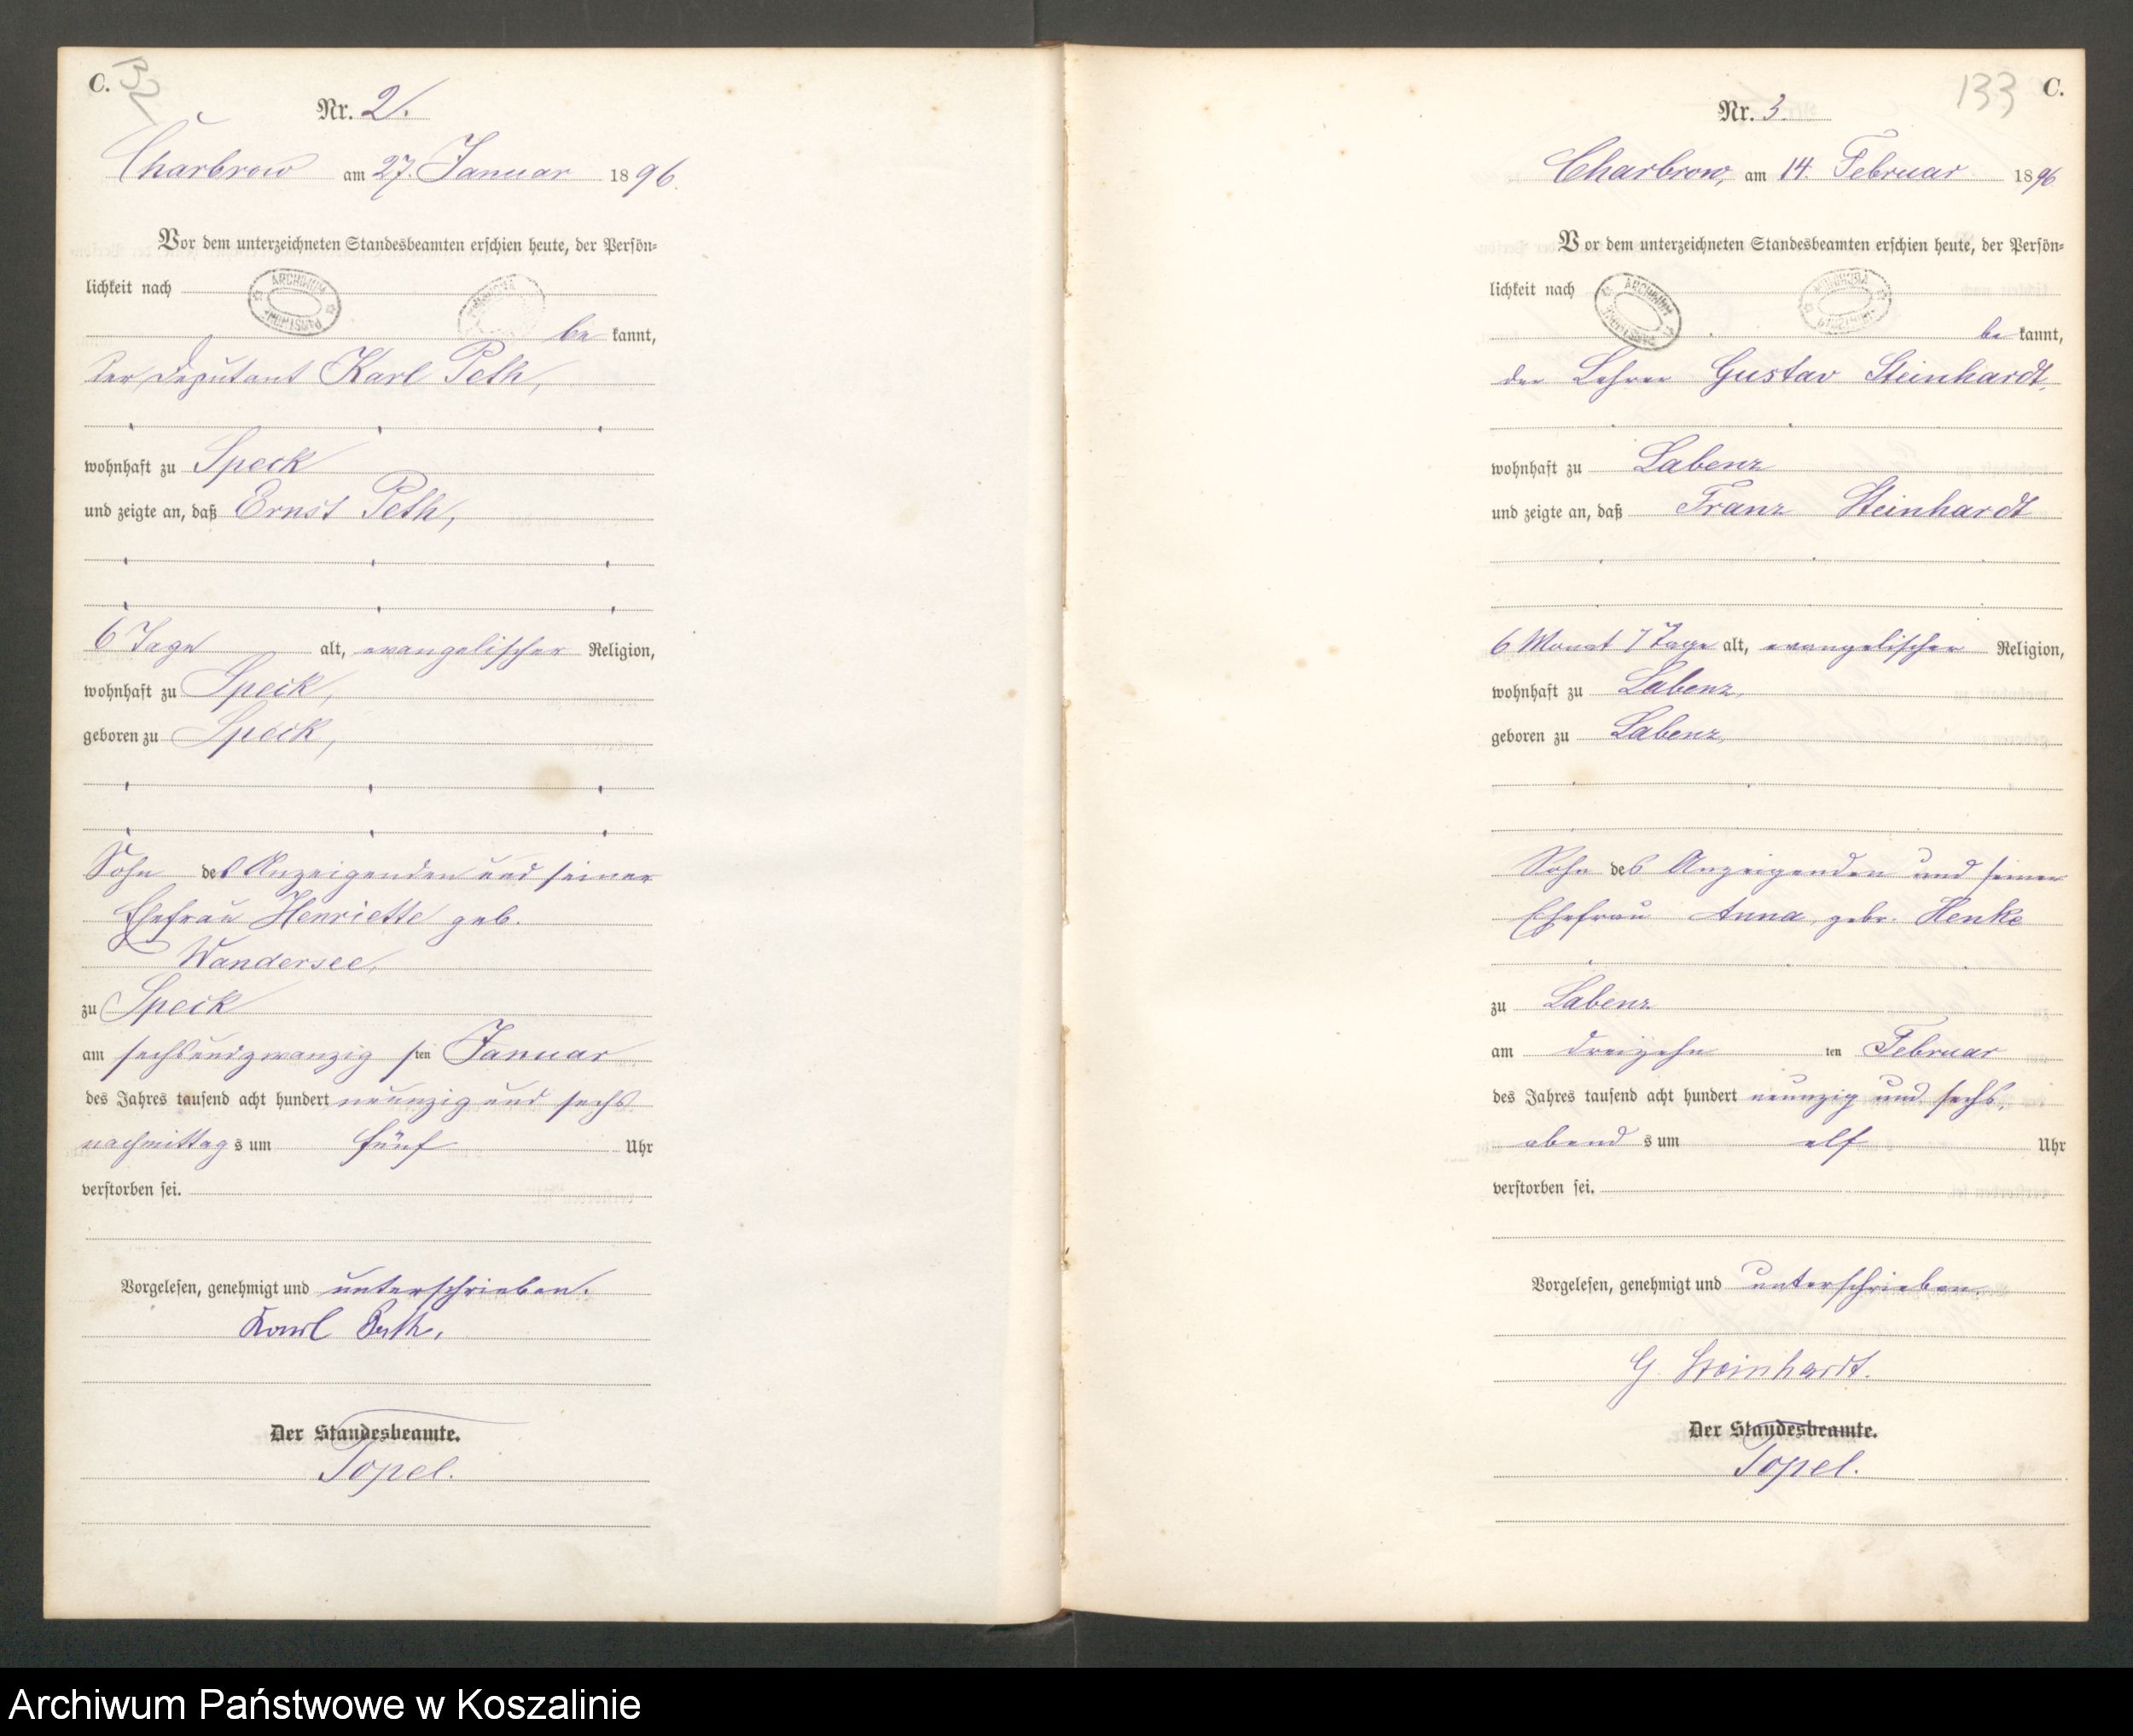 C.
132
Nr. 2.
Charbrow am 27. Januar 1896.
Vor dem unterzeichneten Standesbeamten erschien heute, der Persön=
lichkeit nach
ARCHIWUM
be kannt,
der Deputant Karl Peth,
wohnhaft zu Speck
und zeigte an, daß Ernst Peth,
6 Tage alt, evangelischer Religion,
wohnhaft zu Speck,
geboren zu Speck,
Sohn des Anzeigenden und seiner
Ehefrau Henriette geb.
Wandersee,
zu Speck
am sechsundzwanzigsten Januar
des Jahres tausend acht hundert neunzig und sechs
nachmittags um fünf Uhr
verstorben sei.
Vorgelesen, genehmigt und unterschrieben.
Karl Peth,
Der Standesbeamte.
Topel.
133
C.
Nr. 3.
Charbrow, am 14. Februar 1896.
Vor dem unterzeichneten Standesbeamten erschien heute, der Persön=
lichkeit nach
ARCHIWUM
be kannt,
der Lehrer Gustav Steinhardt,
wohnhaft zu Labenz
und zeigte an, daß Franz Steinhardt
6 Monat 7 Tage alt, evangelischer Religion,
wohnhaft zu Labenz,
geboren zu Labenz,
Sohn des Anzeigenden und seiner
Ehefrau Anna, gebr. Henke
zu Labenz
am dreizehn ten Februar
des Jahres tausend acht hundert neunzig und sechs,
abend s um elf Uhr
verstorben sei.
Vorgelesen, genehmigt und unterschrieben.
G. Steinhardt.
Der Standesbeamte.
Topel.
Archiwum Państwowe w Koszalinie